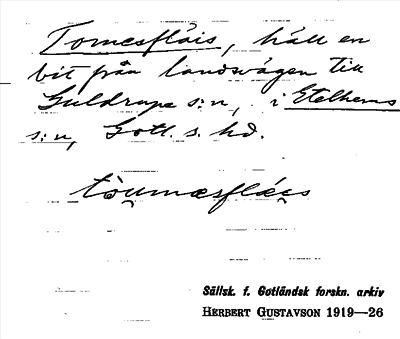 Tomesfláis, häll en
bit från landsvägen till
Guldrupe s:n, i Etelhems
s:n, Gotl. s. hd.
tòumæsfláis
Sällsk. f. Gotländsk forskn. arkiv
HERBERT GUSTAVSON 1919—26